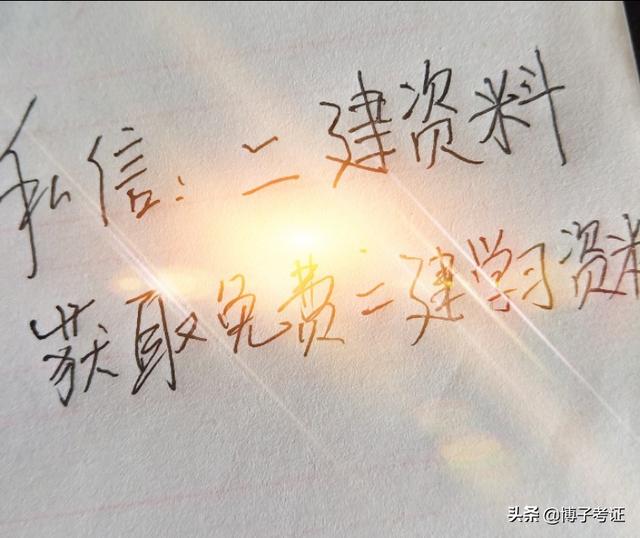 私信：二建资料
获取免费二建学习资料
头条 @博子考证